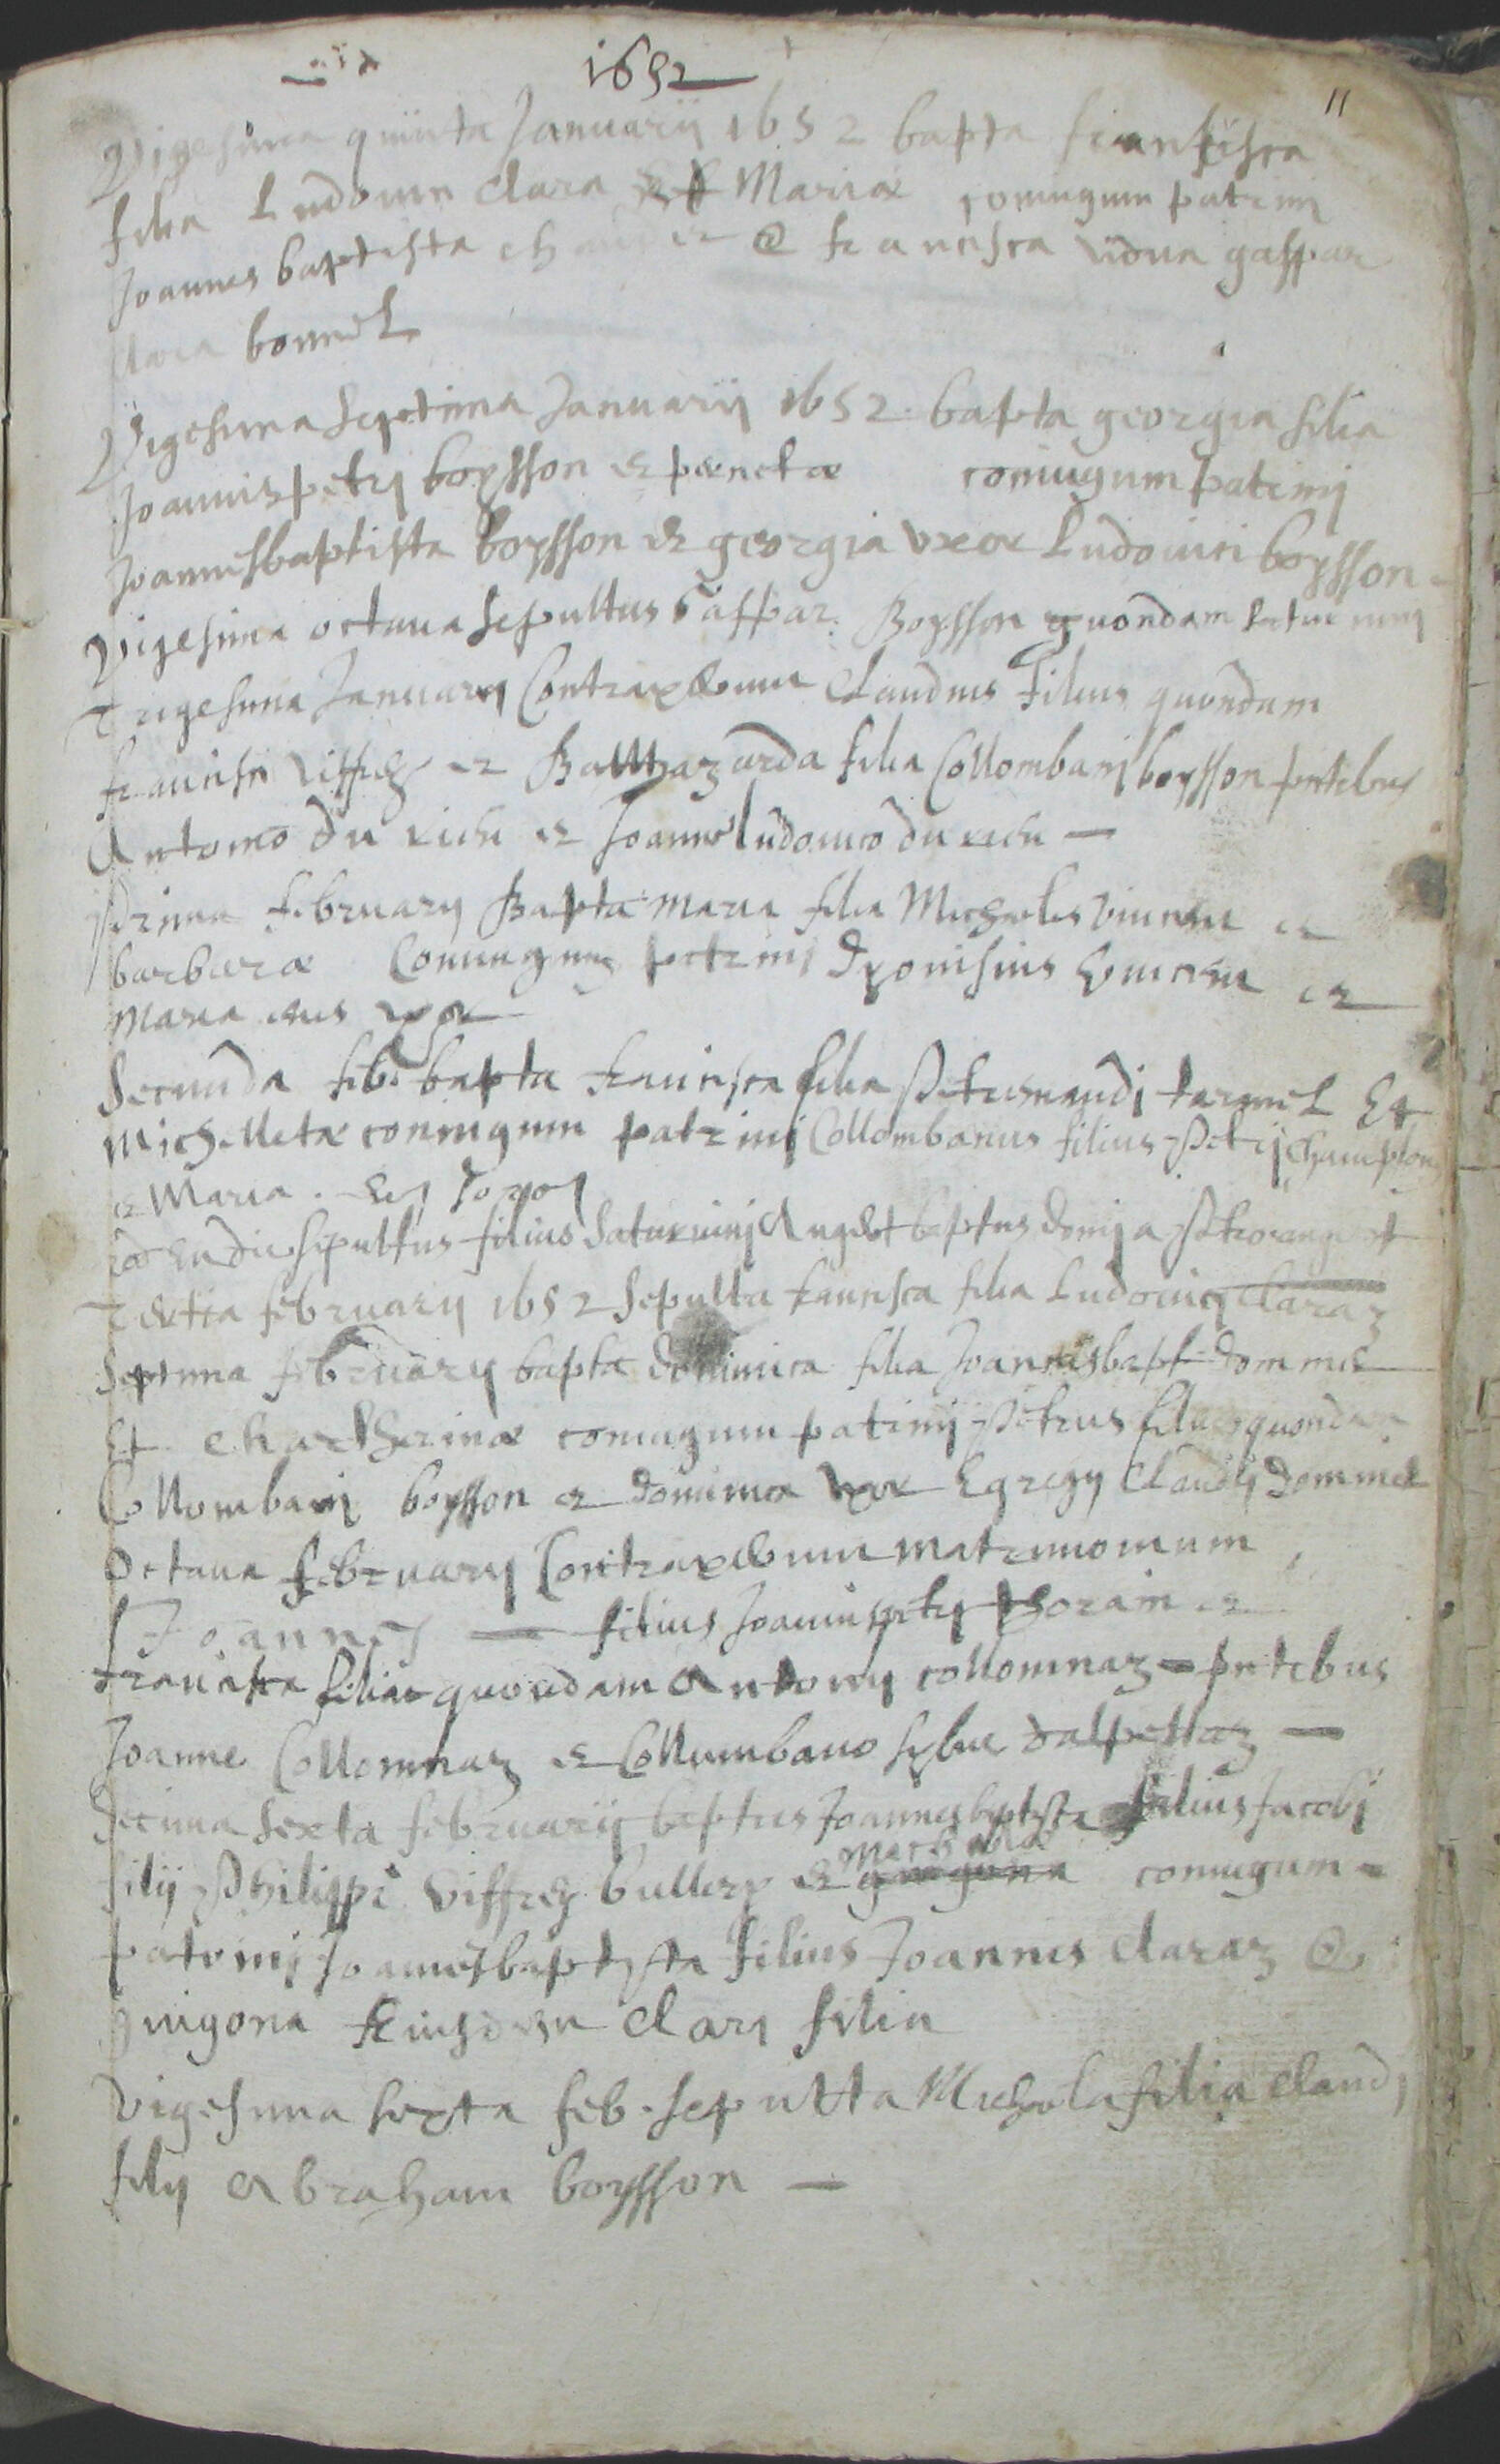 1652
11
Vigesima quinta Januarij 1652 bapta francisca
filia Ludovici clara et Mariæ coniugum patrini
Joannes baptista & francisca vidua gaspar
bonnet
Vigesima septima Januarij 1652 bapta georgia filia
Joannis petri boysson et pernetæ coniugum patrinj
Joannesbaptista boysson et georgia uxor Ludovici boysson
Vigesima octava sepultus Gaspar Boysson quondam
Trigesima Januarij Contraxerunt Claudius filius quondam
francisci viffrey et Balthazarda filia Collombanj boysson pntibus
Antonio du et Joanne ludovico du
Prima februarij Bapta maria filia Michaelis vincen et
barbaræ Coniugum patrinj dyonisius vincen et
Maria eius uxor
Secunda feb. bapta francisca filia Petri tarmel Et
Michelletæ coniugum patrinj Collombanus filius Petrj champlon
et Maria
Eadie sepultus filius Saturninj baptus domj a
Tertia februarij 1652 sepulta francisca filia Ludovici claraz
Septima februarij bapta dominica filia Joannisbapt dommel
Et chartherinæ coniugum patrinj Petrus filius quondam
Collombanj boysson et dominica uxor Egregij Claudij dommel
Octava februarij Contraxerunt matrimonium
Joannes — filius Joannis petrj thorain et
francisca filia quondam Antonij collomnaz — pntibus
Joanne Collomnaz et Collumbano dalpettaz —
Decima sexta februarij baptus Joannes baptista filius Jacobj
filij Philippi viffrey bullery et coniugum
patrinj Joannesbaptysta filius Joannis claraz &
guigona eiusdem clary filia
Vigesima sexta feb. sepulta Michaela filia claudj
filij Abraham boysson —